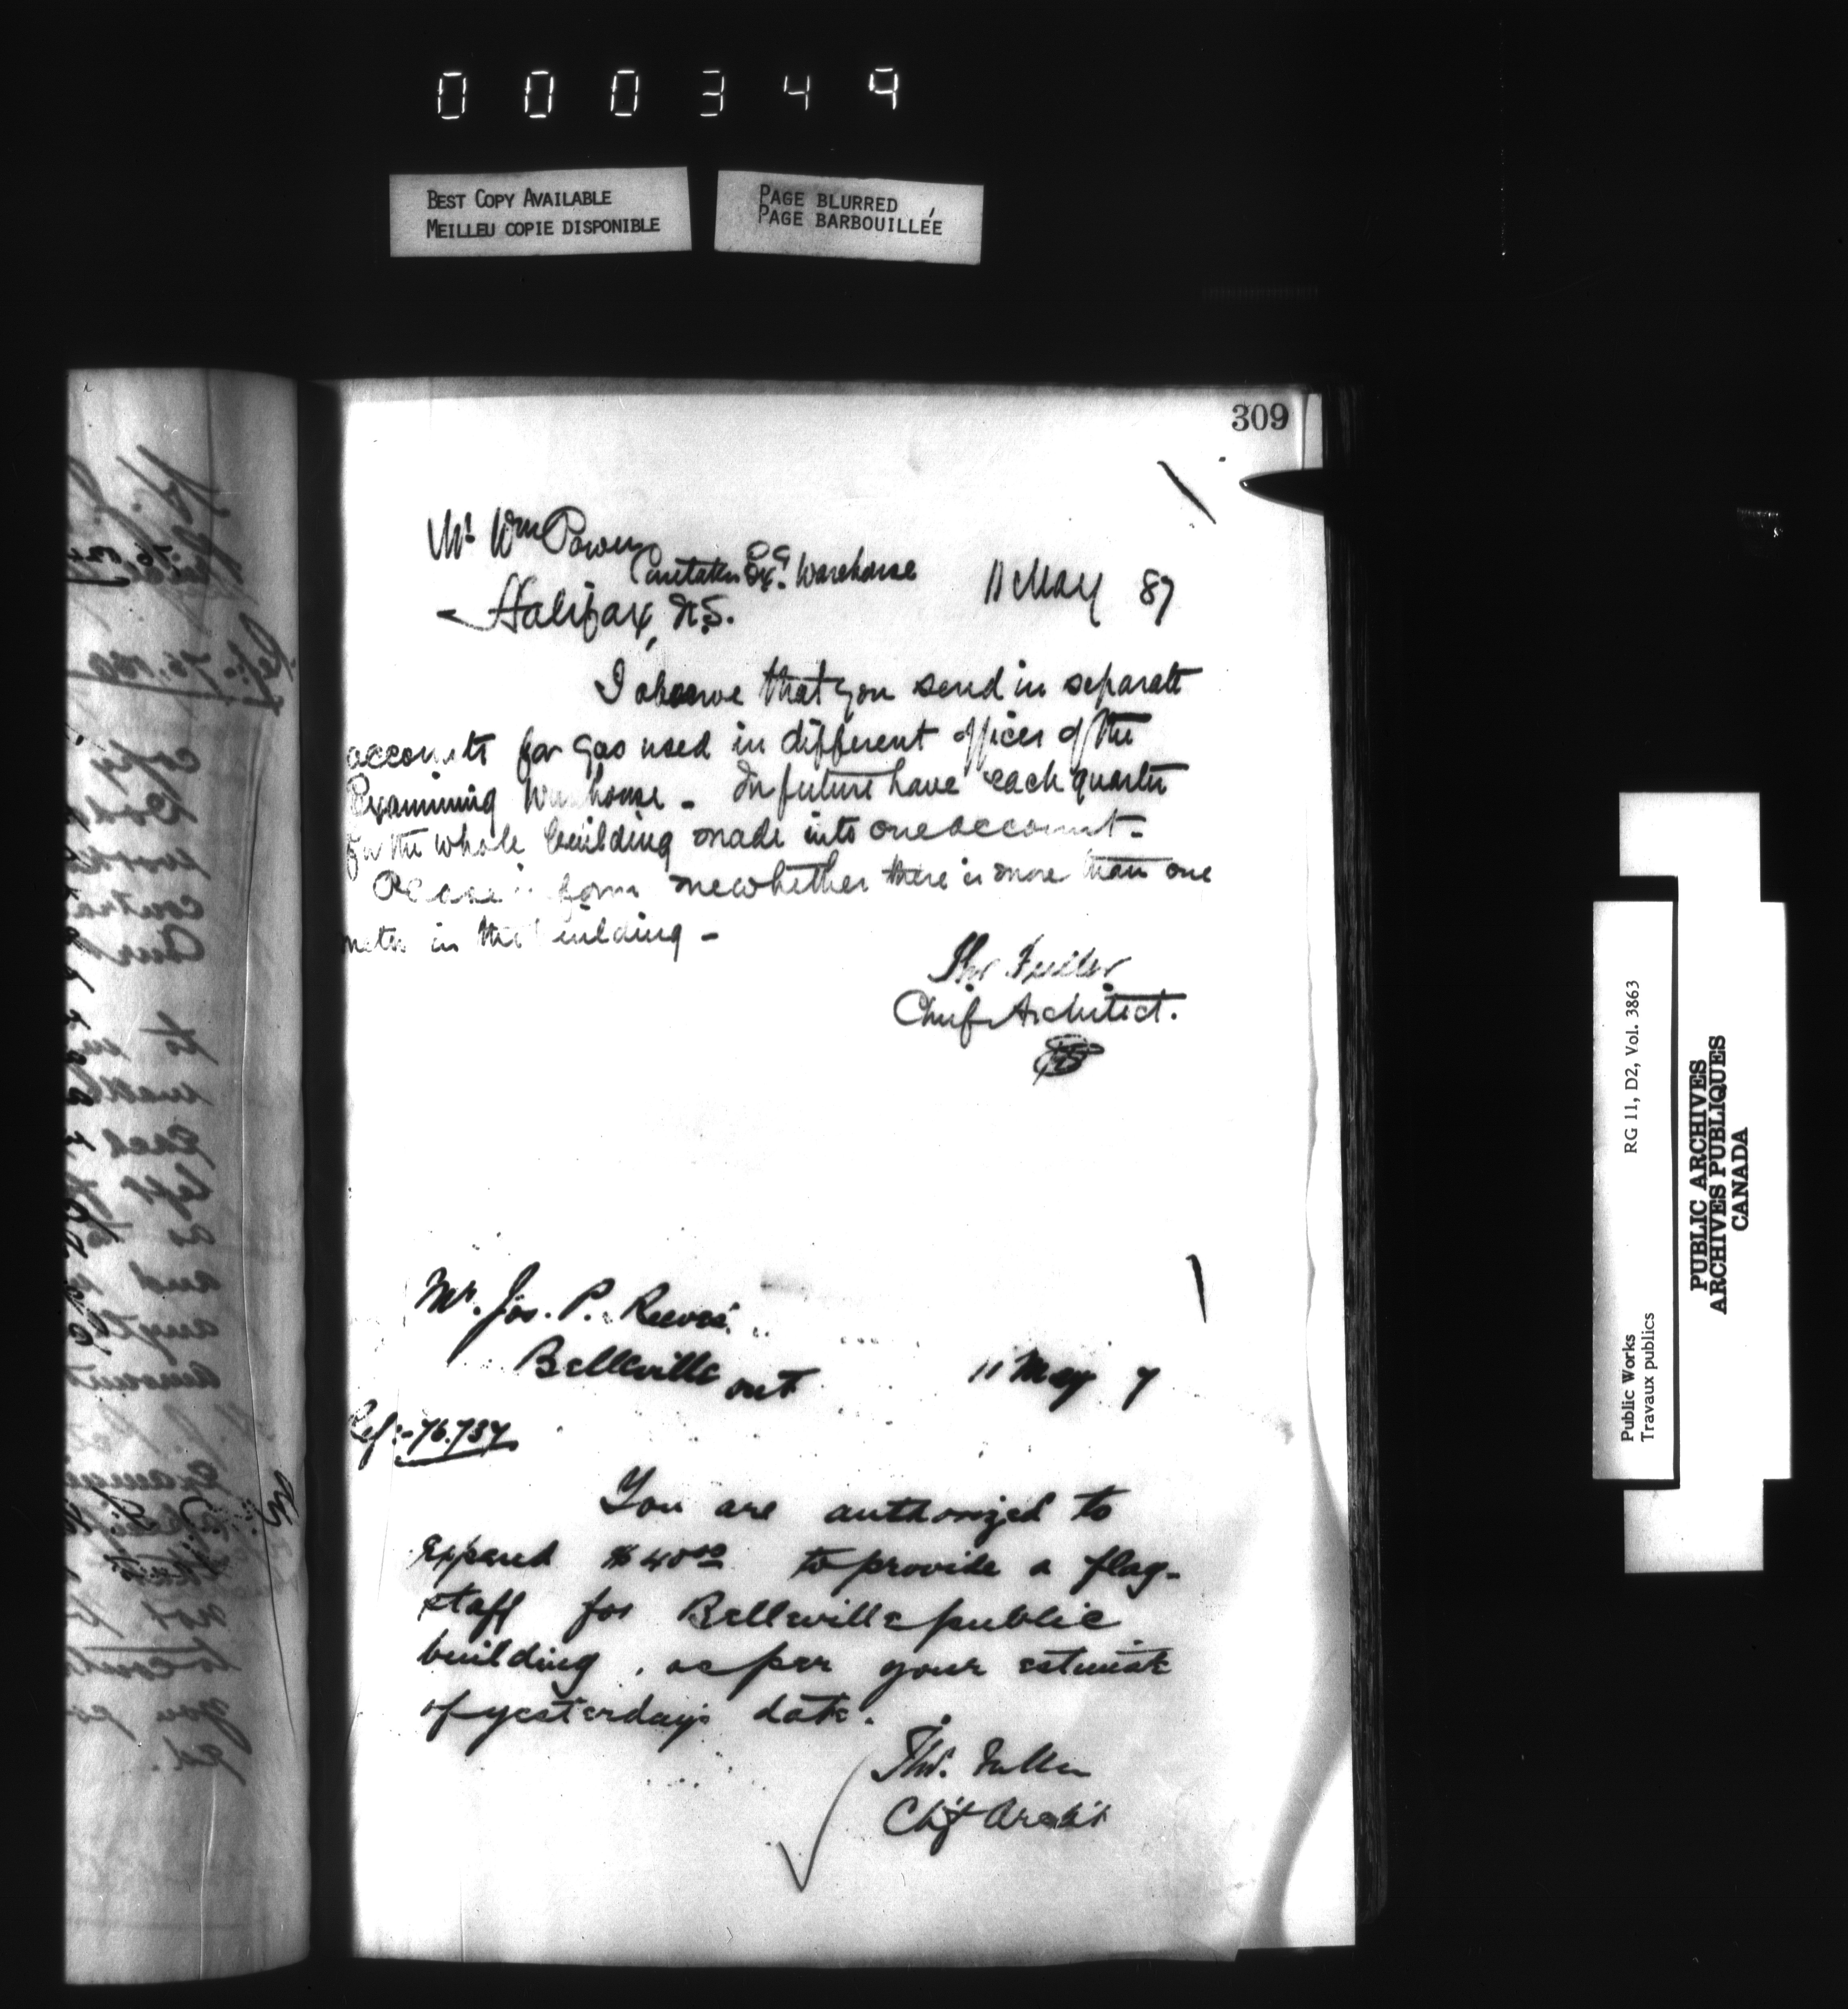 000349
BEST COPY AVAILABLE
MEILLEU COPIE DISPONIBLE
PAGE BLURRED
PAGE BARBOUILLÉE
309
Mr Wm Power
Caretaker Ex. Warehouse
Halifax, N.S.
11 May 87
I observe that you send in separate
accounts for gas used in different offices of the
Examining Warehouse - In future have each quarter
for the whole building made into one account -
Please inform me whether there is more than one
meter in the building -
Thos Fuller
Chief Architect.
Mr. Jos. P. Reeves.
Belleville Ont
11 May 7
Ref:- 76.734
You are authorized to
expend $40.00 to provide a flag-
staff for Belleville public
building, as per your estimate
of yesterday's date.
Thos. Fuller
Chf Archt
Public Works
Travaux publics
RG 11, D2, Vol. 3863
PUBLIC ARCHIVES
ARCHIVES PUBLIQUES
CANADA